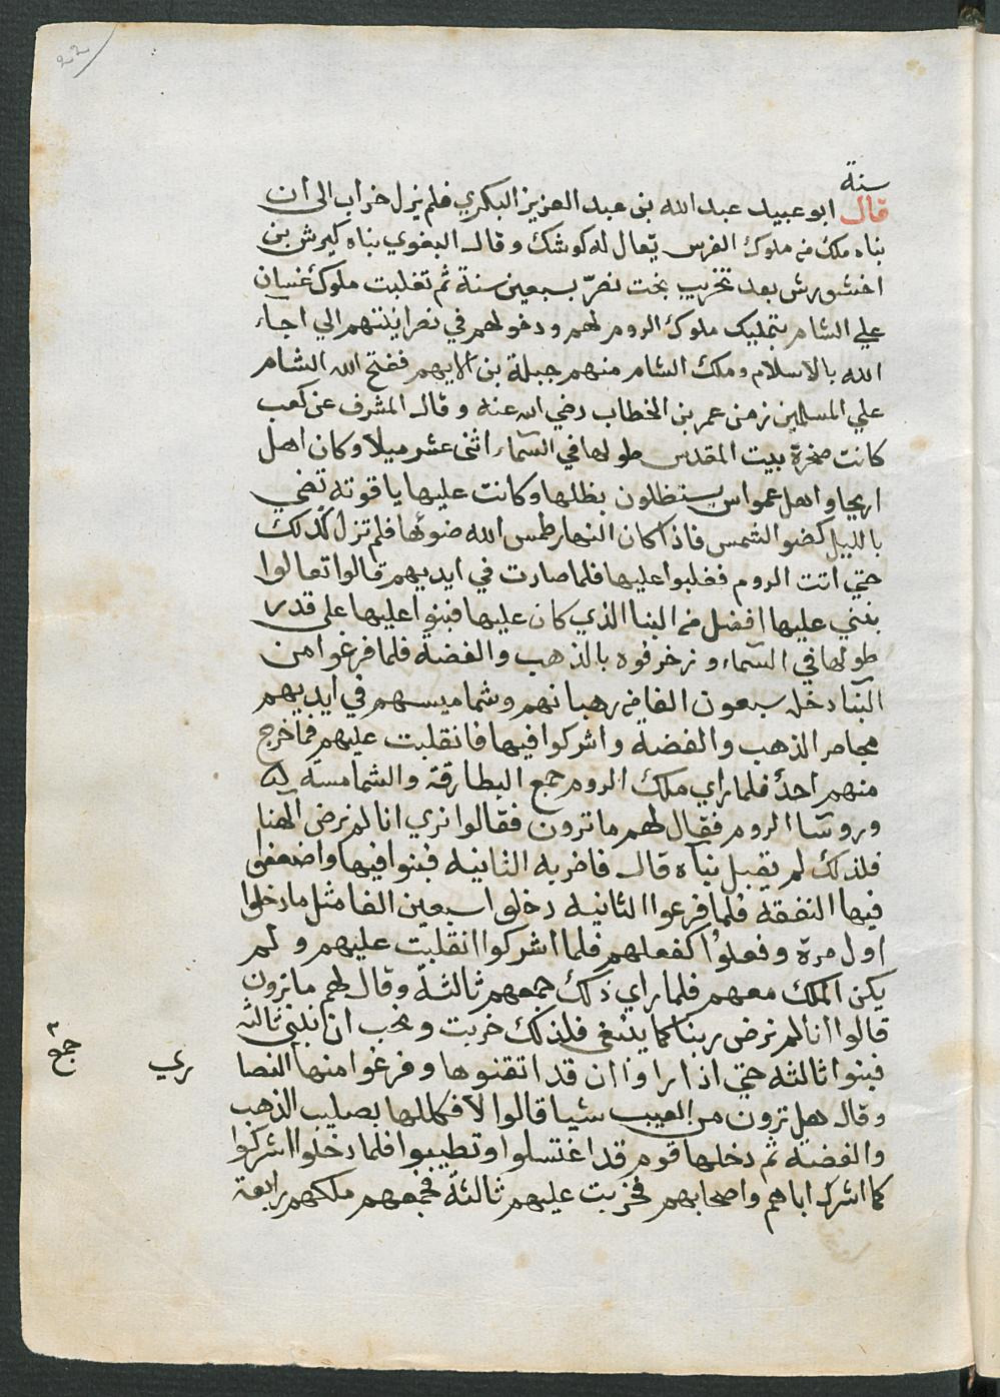 22
سنة
قال ابو عبيد عبد الله بن عبد العزيز البكري فلم يزل خراب الى ان
بناه ملك من ملوك الفرس يقال له كوشك وقال البغوي بناه كيرش بن
اخشورش بعد تخريب بخت نصر بسبعين سنة ثم تغلبت ملوك غسان
علي الشام بتمليك ملوك الروم لهم ودخولهم في نصرانيتهم الي اجاء
الله بالاسلام وملك الشام منهم جبلة بن الايهم ففتح الله الشام
علي المسلمين زمن عمر بن الخطاب رضي الله عنه وقال المشرف عن كعب
كانت صخرة بيت المقدس طولها في السماء اثنى عشر ميلا وكان اهل
اريحا واهل عمواس يستظلون بظلها وكانت عليها ياقوته تضي
بالليل كضو الشمس فاذا كان النهار طمس الله ضوئها فلم تزل كذلك
حتي اتت الروم فغلبوا عليها فلما صارت في ايديهم قالوا تعالوا
نبني عليها افضل من البنا الذي كان عليها فبنوا عليها على قدر
طولها في السماء وزخرفوه بالذهب والفضة فلما فرغوا من
البنا دخله سبعون الفا من رهبانهم وشماميسهم في ايديهم
مجامر الذهب والفضة واشركوا فيها فانقلبت عليهم فما خرج
منهم احد فلما راي ملك الروم جمع البطارقة والشمامسة
وروسا الروم فقال لهم ما ترون فقالوا نري انا لم نرض الهنا
فلذلك لم يقبل بناه قال فاضر به الثانيه فبنوا فيها واضعفوا
فيها النفقة فلما فرغوا الثانيه دخلوا سبعين الفا مثل ما دخلوا
اول مرة وفعلوا كفعلهم فلما اشركوا انقلبت عليهم ولم
يكن الملك معهم فلما راي ذلك جمعهم ثالثة وقال لهم ما ترون
قالوا انا لم نرض ربنا كما ينبغي فلذلك خربت ونحب ان نبني ثالثه
فبنوا ثالثه حتي اذا راوا ان قد اتقنوها وفرغوا منها النصا
ري
وقال هل ترون من العيب شيا قالوا لا فكللها بصليب الذهب
والفضة ثم دخلها قوم قد اغتسلوا وتطيبوا فلما دخلوا اشركوا
كما اشرك اباهم واصحابهم فخربت عليهم ثالثة فجمعهم ملكهم رابعة